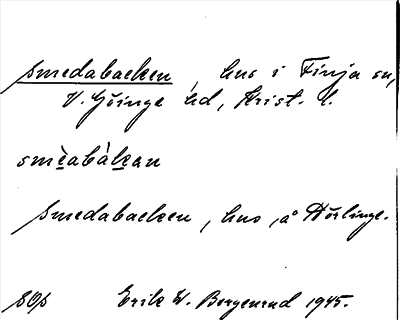 Smedabacken, hus i Finja sn,
V. Göinge hd, Krist. l.
smèabàkan
Smedabacken, hus, å Hörlinge.
SOp Erik W. Bergenrud 1945.